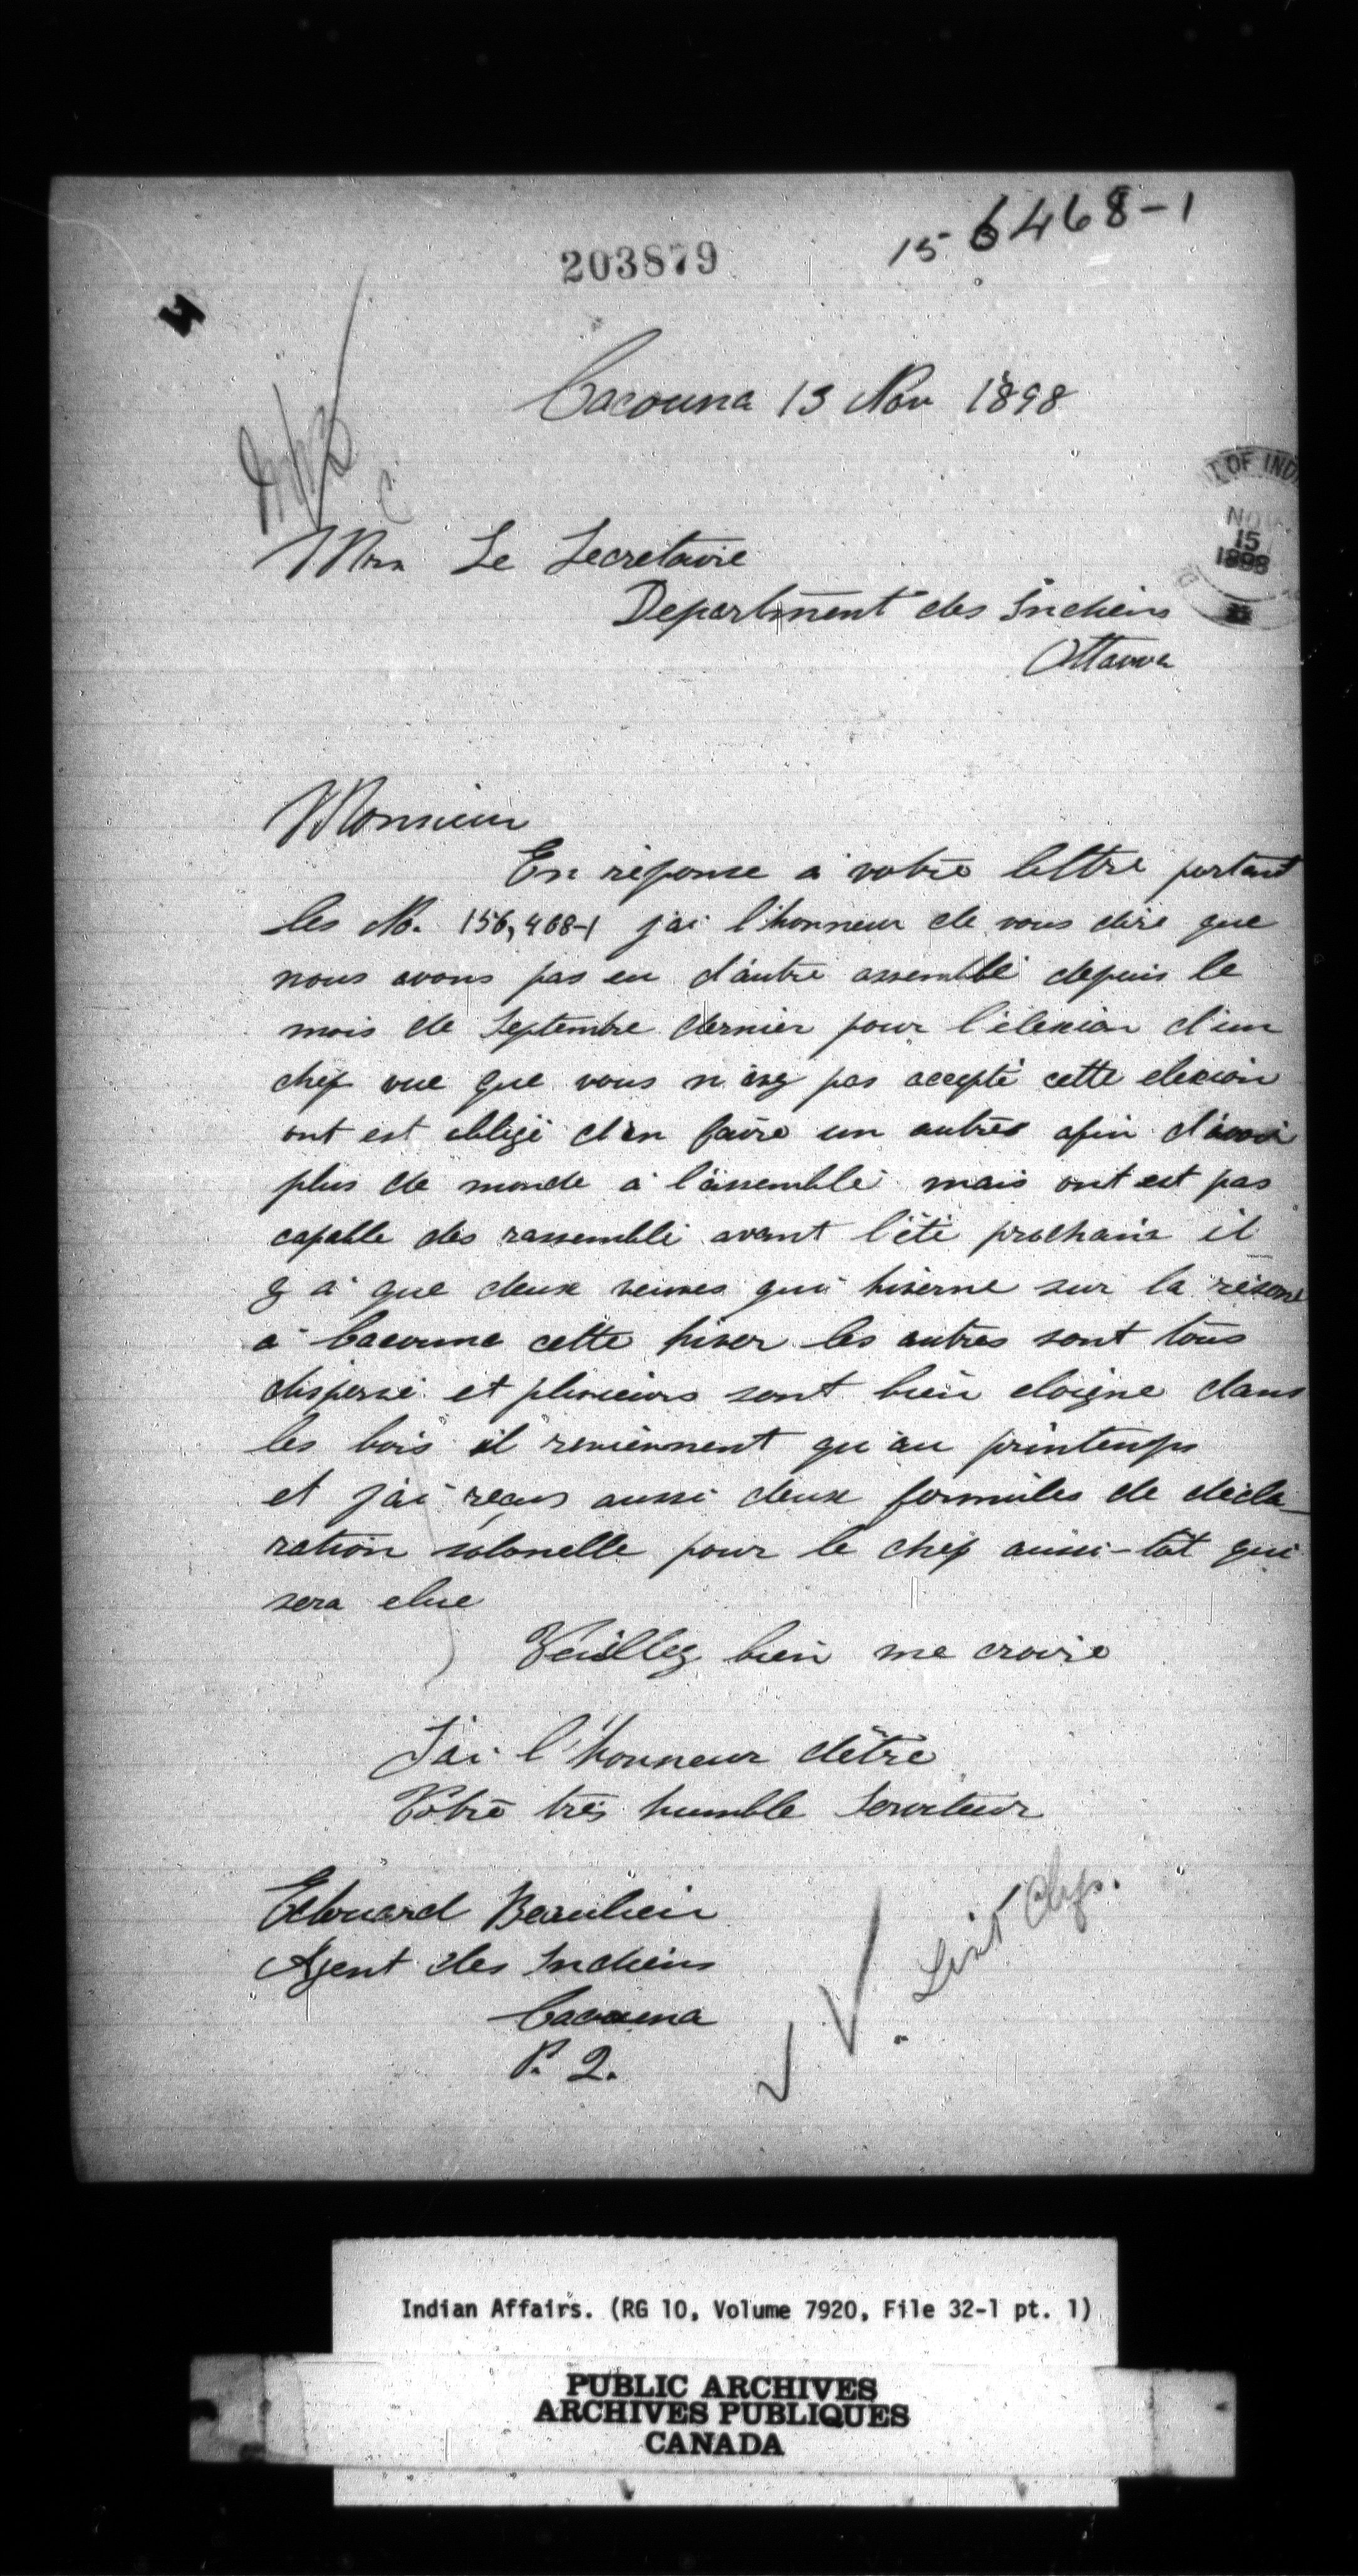 156468-1
203879
Cacouna 13 Nov 1898
T OF IND
NOV
15
1898
Mrn Le Secretaire
Department des Indiens
Ottawa
Monsieur
En réponse a votre lettre portant
les No. 156,468-1 j'ai l'honneur de vous dire que
nous avons pas eu d'autre assemblé depuis le
mois de Septembre dernier pour l'élexion d'un
chef vue que vous n'avez pas accepté cette elexion
ont est obligé d'en faire un autres afin d'avoir
plus de monde a l'assemblé mais ont est pas
capable des rassemblé avant l'été prochain il
y a que deux veuves qui hiverne sur la réserve
a Cacouna cette hiver les autres sont tous
dispersé et plusieurs sont bien eloigne dans
les bois il reviennent qu'au printemps
et j'ai reçus aussi deux formules de décla-
ration solonelle pour le chef aussi-tôt qui
sera elue
Veuillez bien me croire
J'ai l'honneur d'être
Votre très humble Serviteur
Edouard Beaulieu
Agent des Indiens
Cacouna
P. Q.
Indian Affairs. (RG 10, Volume 7920, File 32-1 pt. 1)
PUBLIC ARCHIVES
ARCHIVES PUBLIQUES
CANADA